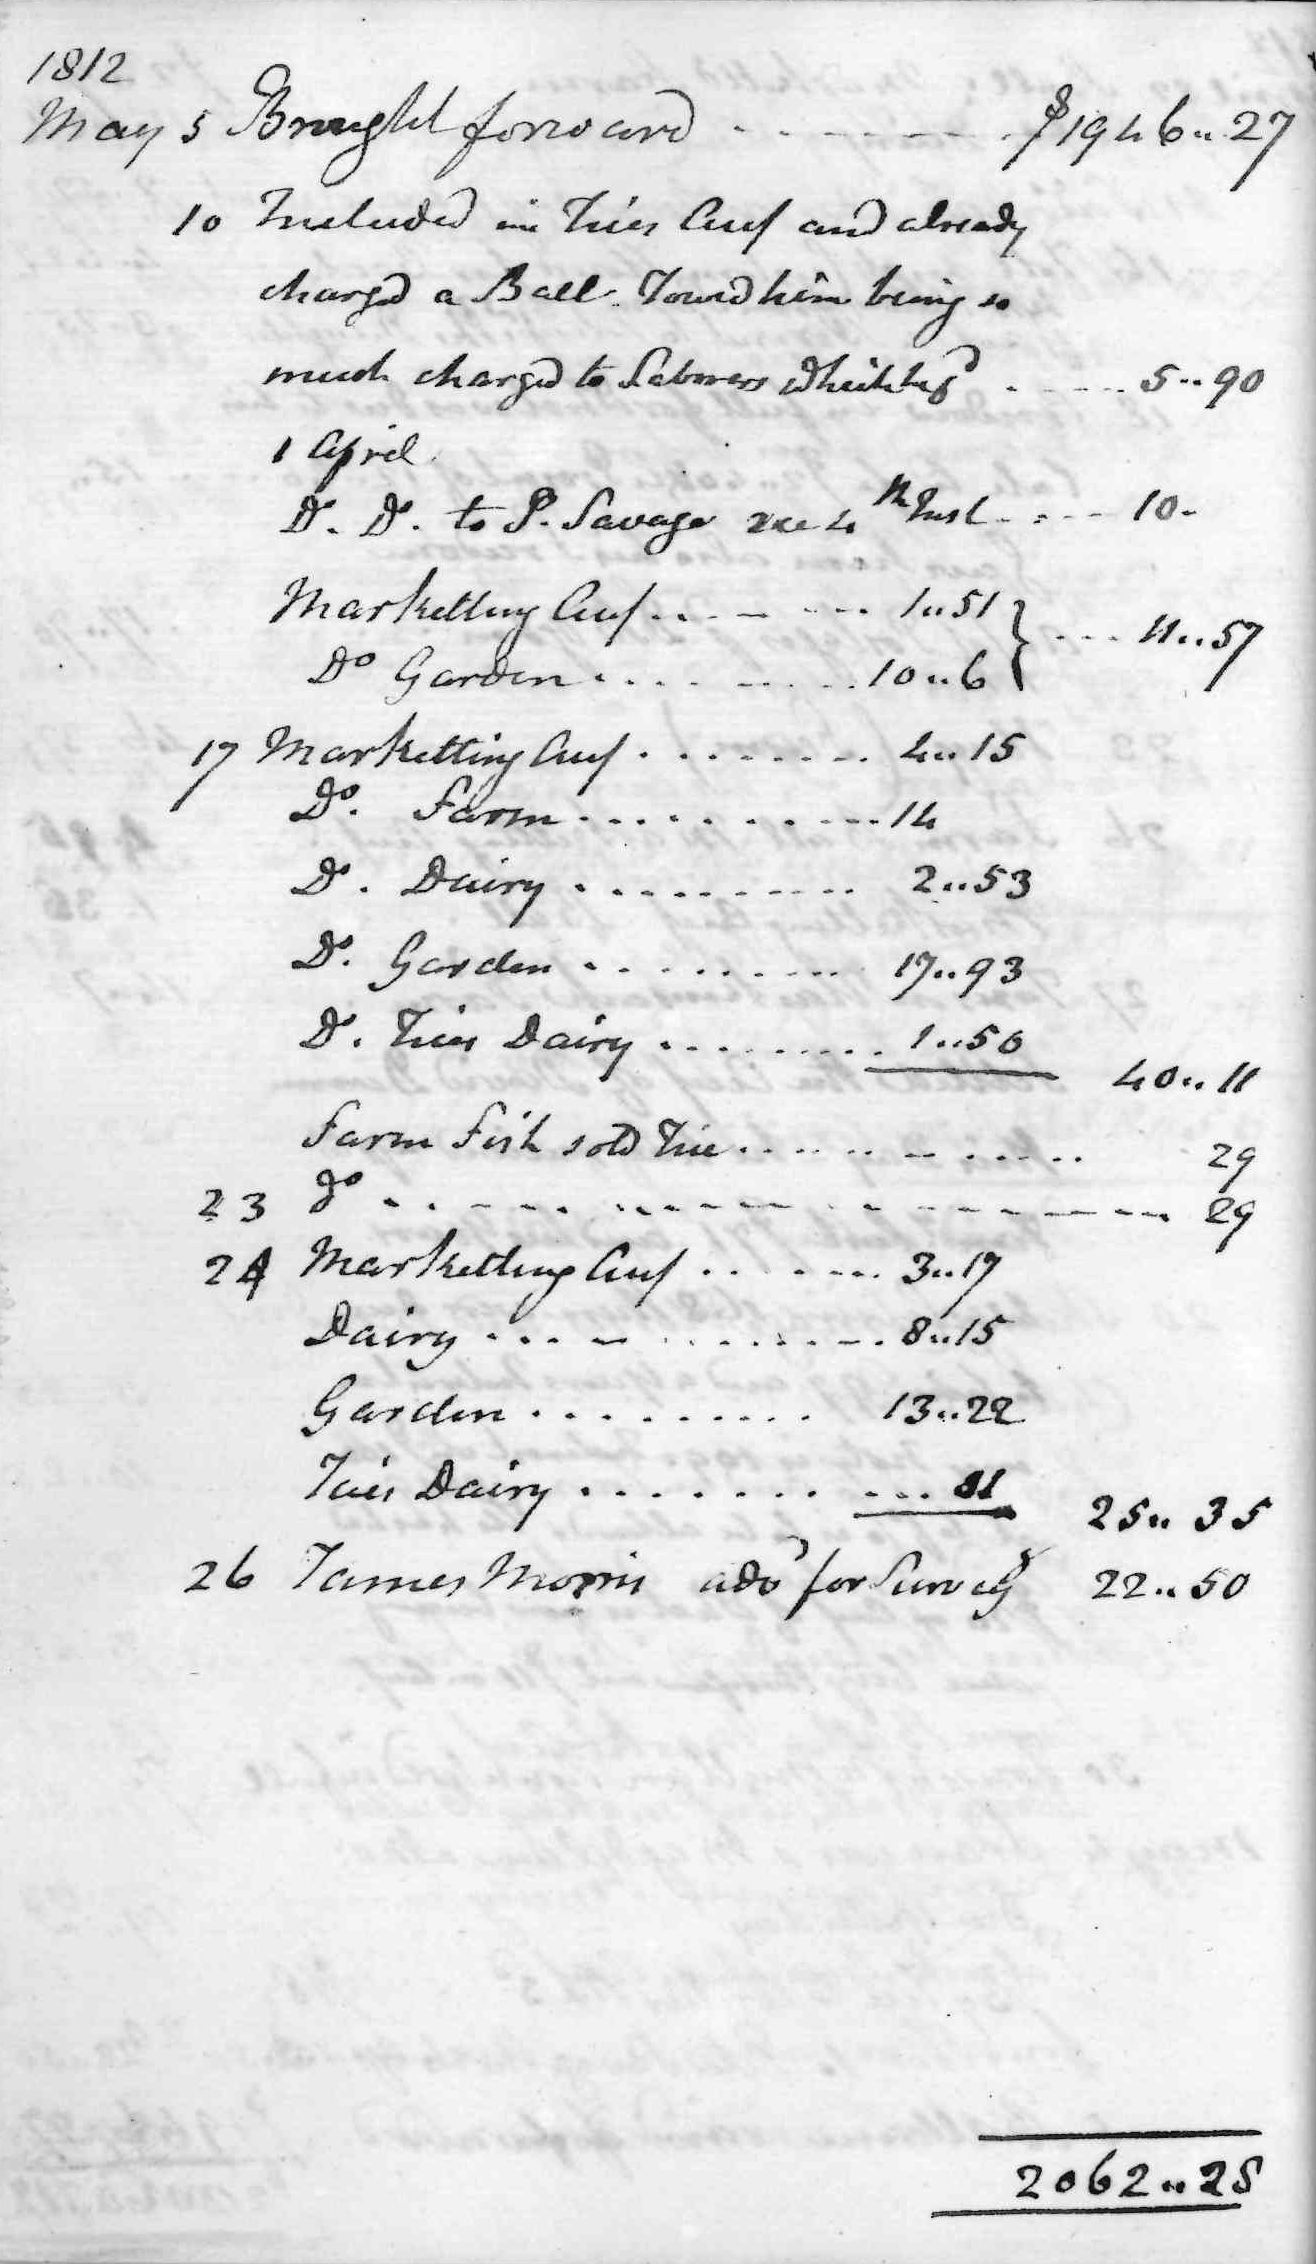 1812
May 5 Brought forward $1946..27
10 Included in Tries Acct and already
charged a Ball. Towed him being so
much charged to Laborers 5..90
1 April.
Do. Do. to P. Savage 4th Inst 10.
Marketting Acct 1..51
Do Garden 10..6 } 11..57
17 Marketting Acct 4..15
Do. Farm 14
Do. Dairy 2..53
Do. Garden 17..93
Do. Tries Dairy 1..50
40..11
Farm Fish sold Trie 29
23 do 29
24 Marketting Acct 3..17
Dairy 8..15
Garden 13..22
Tries Dairy 81
25..35
26 James Morris advd for Survey 22..50
2062..28